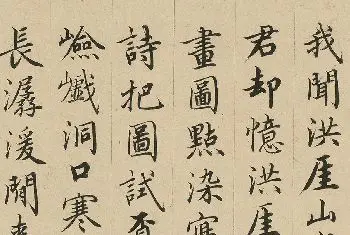 我聞洪厓山
君却憶洪厓
畫圖點染寒
詩把圖試
嶮巇洞口寒
長潺湲閒